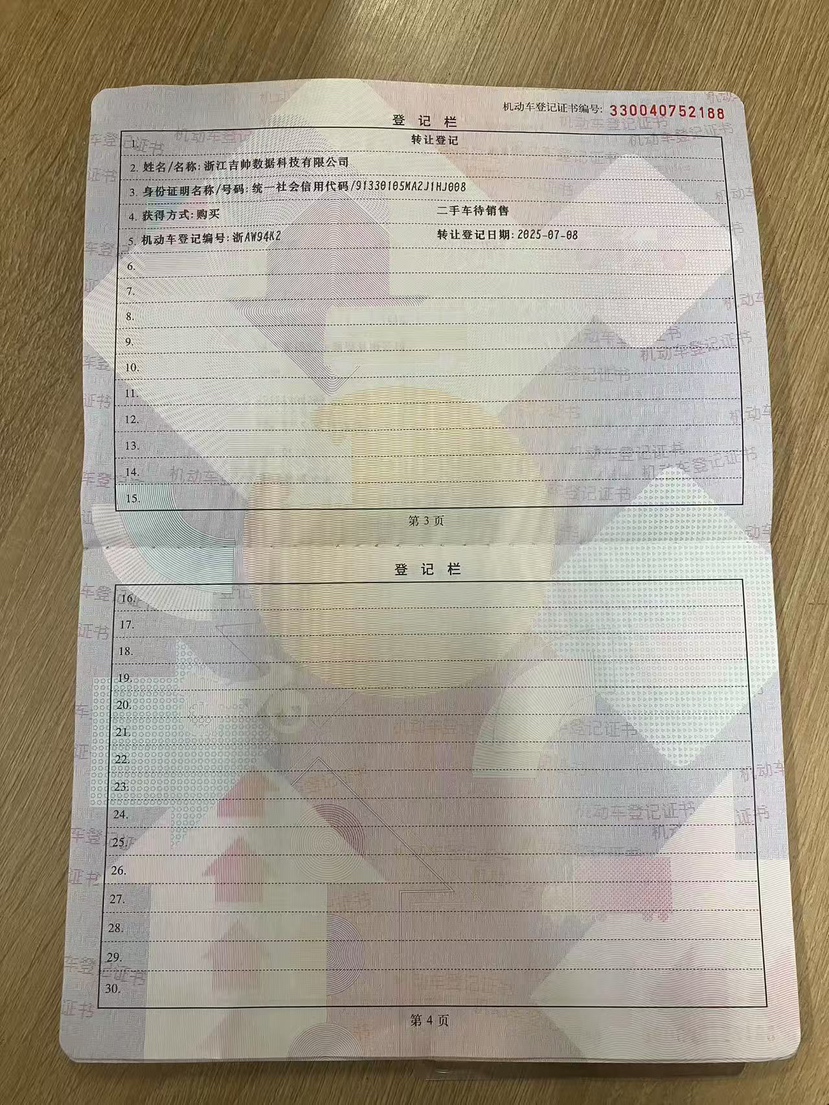 机动车登记证书编号: 330040752188
登 记 栏
1. 转让登记
2. 姓名/名称: 浙江吉帅数据科技有限公司
3. 身份证明名称/号码: 统一社会信用代码/91330105MA2J1HJ008
4. 获得方式: 购买 二手车待销售
5. 机动车登记编号: 浙AW94K2 转让登记日期: 2025-07-08
6.
7.
8.
9.
10.
11.
12.
13.
14.
15.
第 3 页
登 记 栏
16.
17.
18.
19.
20.
21.
22.
23.
24.
25.
26.
27.
28.
29.
30.
第 4 页